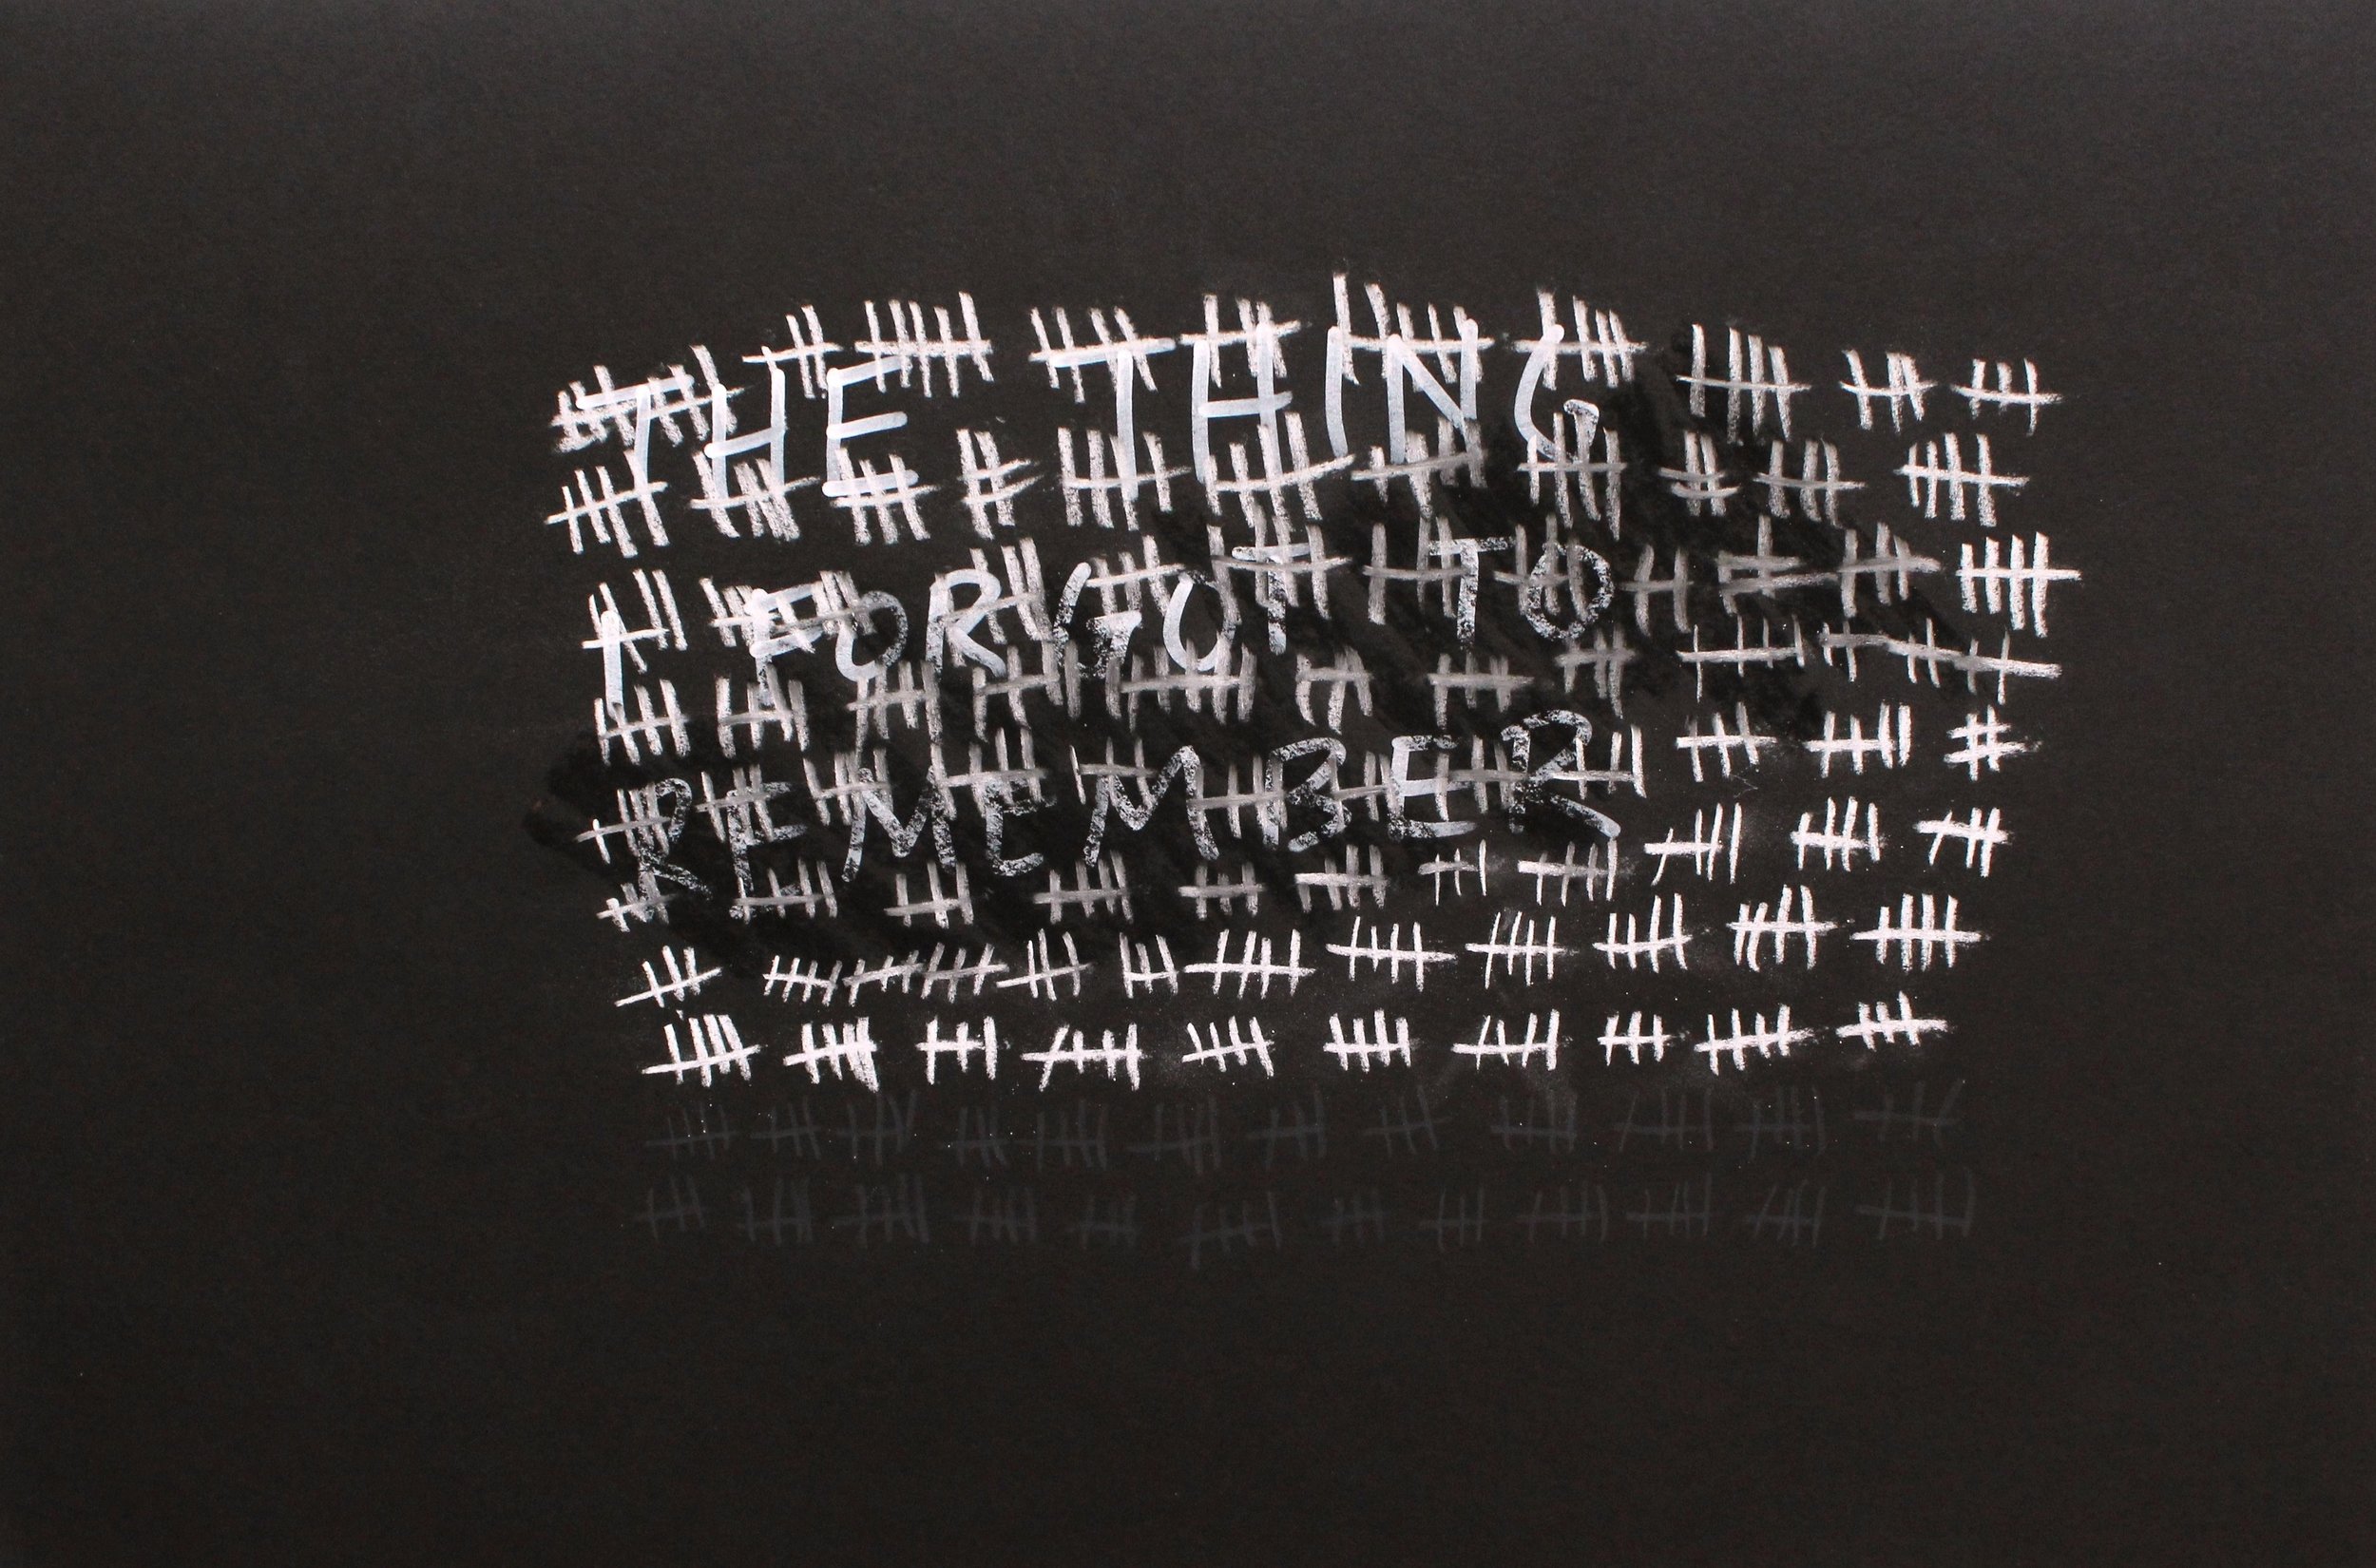 THE THING
I FORGOT TO
REMEMBER